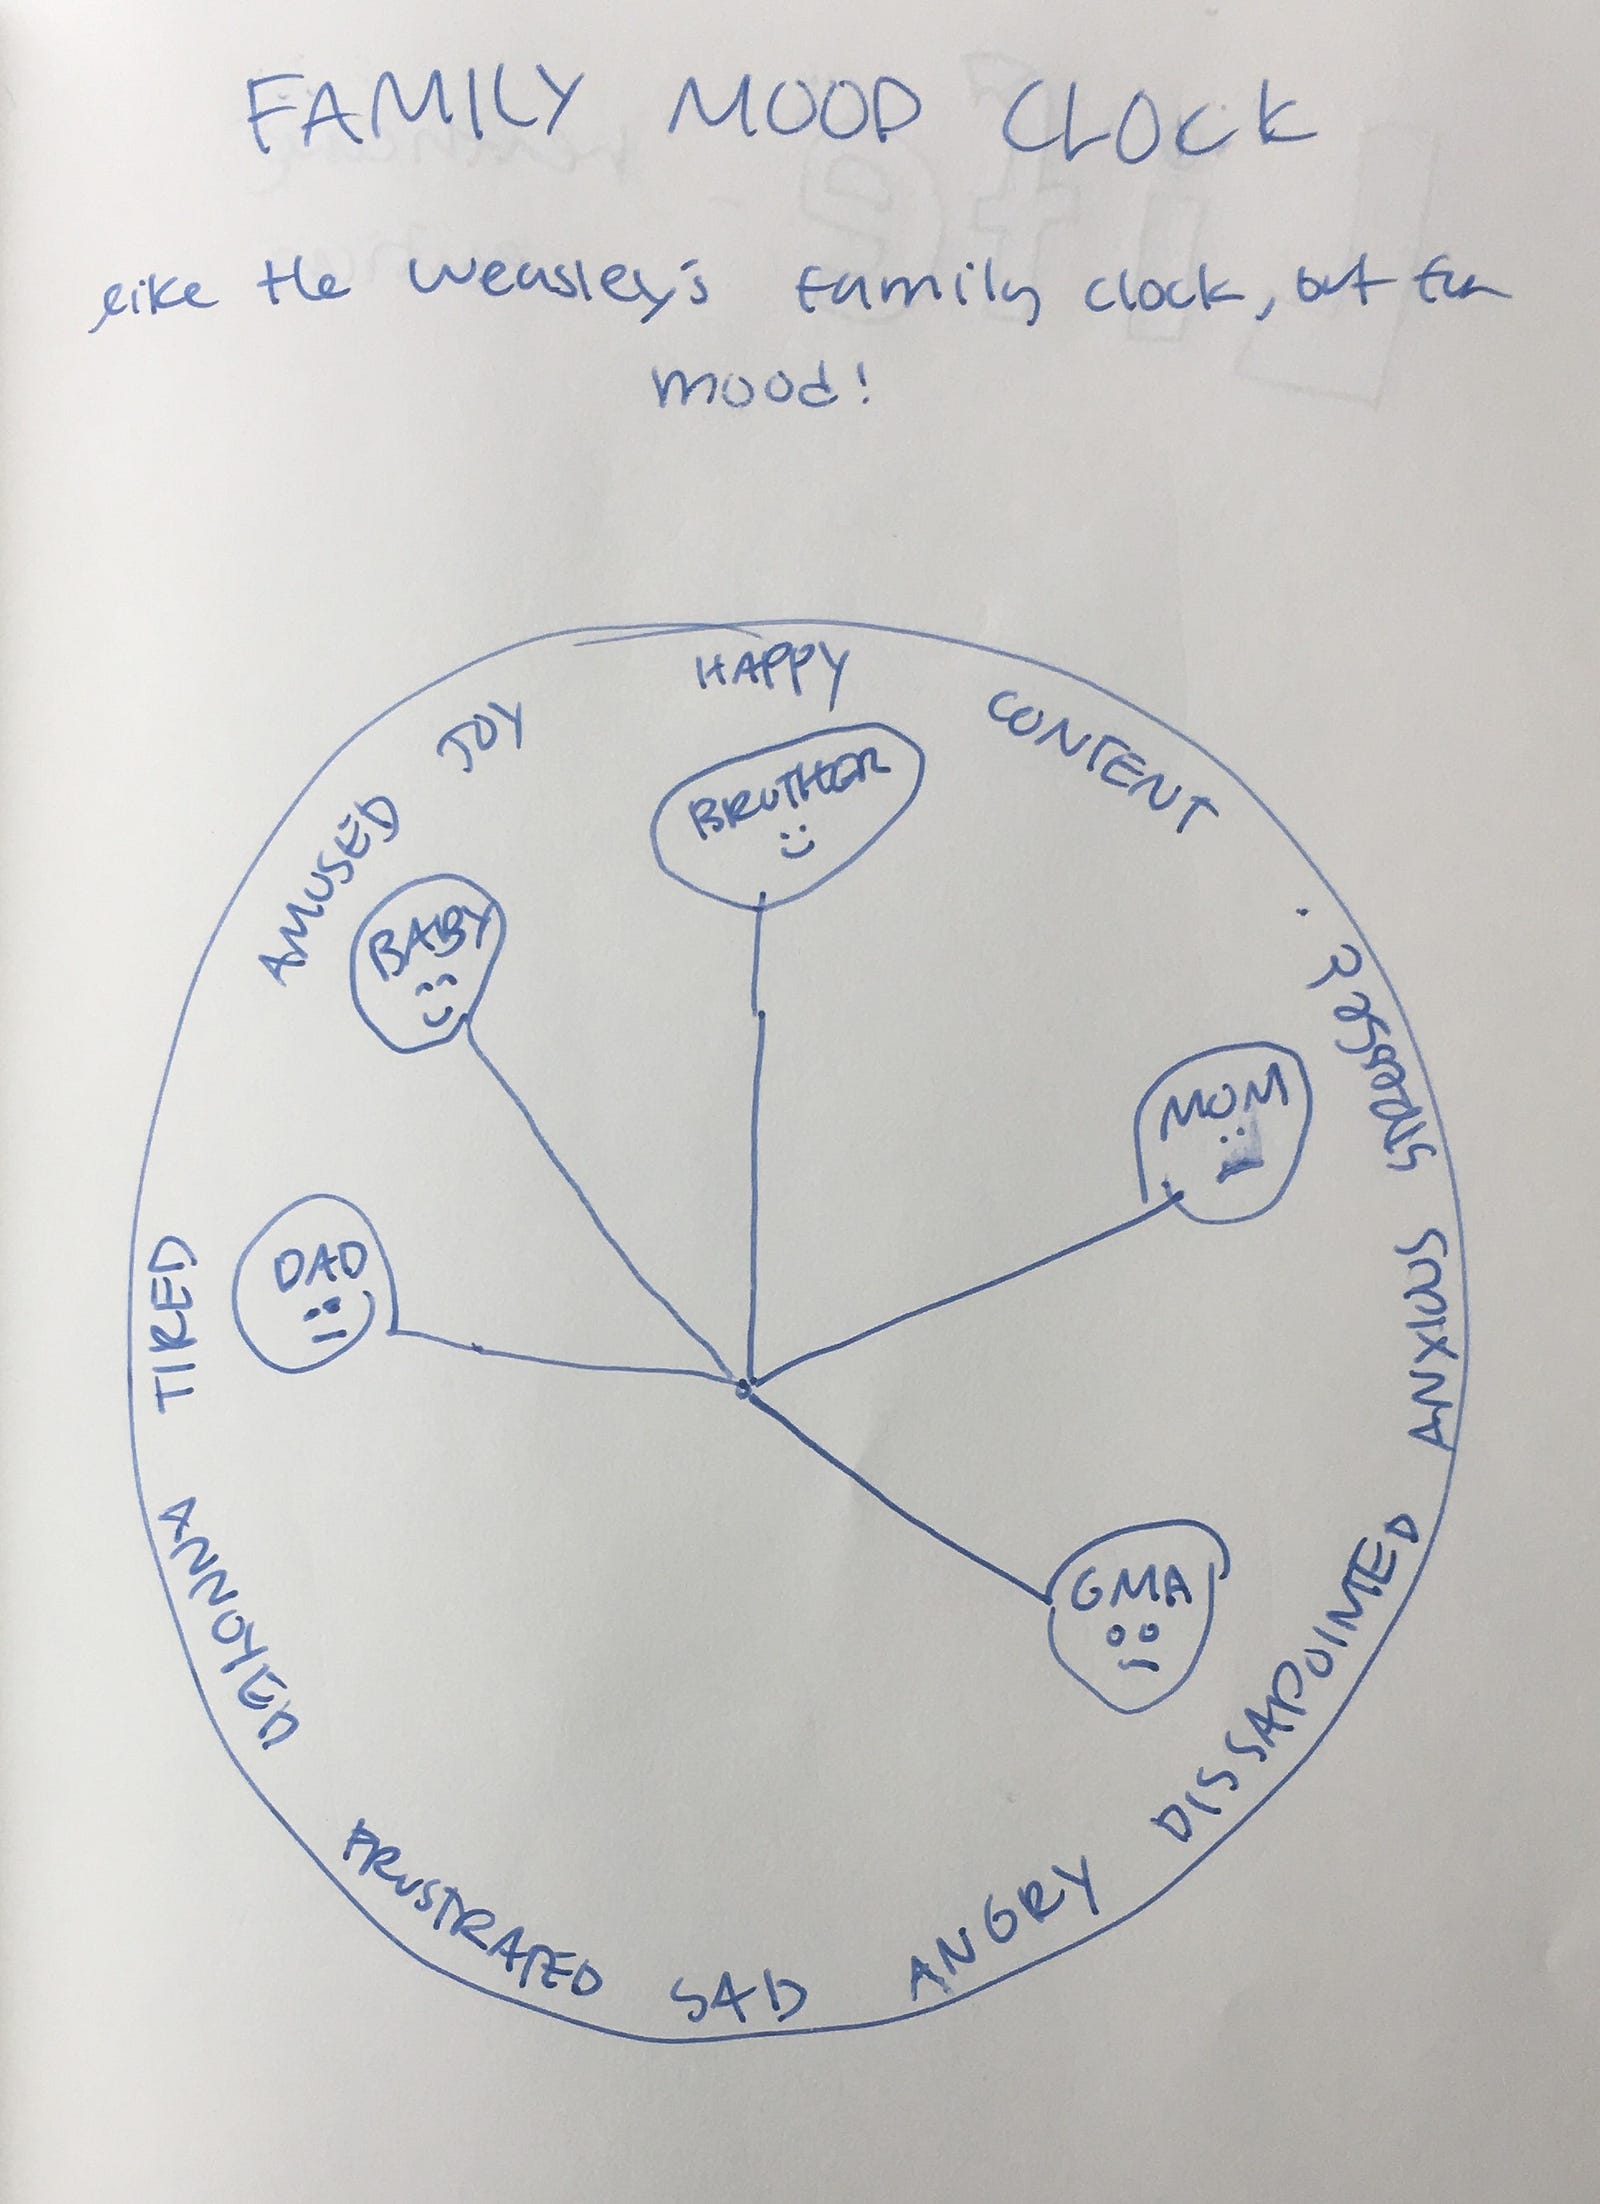 FAMILY MOOD CLOCK
like the Weasley's family clock, but for
mood!
HAPPY
CONTENT
STRESSED
ANXIOUS
DISSAPOINTED
ANGRY
SAD
FRUSTRATED
ANNOYED
TIRED
AMUSED
JOY
BROTHER
BABY
MOM
DAD
GMA